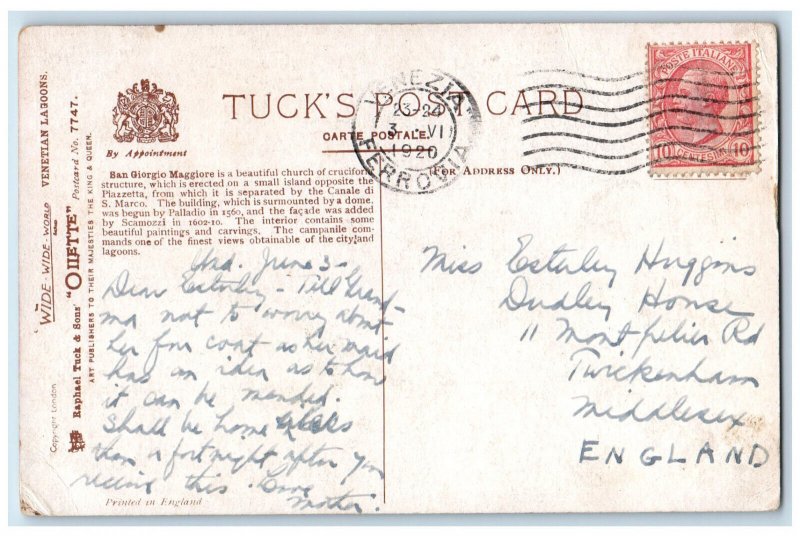 TUCK'S POST CARD
CARTE POSTALE.
By Appointment
(FOR ADDRESS ONLY.)
VENEZIA
23-24
3 VI
1920
FERROVIA
POSTE ITALIANE
10 CENTESIMI 10
San Giorgio Maggiore is a beautiful church of cruciform
structure, which is erected on a small island opposite the
Piazzetta, from which it is separated by the Canale di
S. Marco. The building, which is surmounted by a dome,
was begun by Palladio in 1560, and the façade was added
by Scamozzi in 1602-10. The interior contains some
beautiful paintings and carvings. The campanile com-
mands one of the finest views obtainable of the city and
lagoons.
Wed. June 3-
Dear Esterley - Tell Grand-
ma not to worry about
her fur coat as her maid
has an idea as to how
it can be mended.
Shall be home less
than a fortnight after you
receive this. Love
Mother.
Printed in England
Miss Esterley Huggins
Dudley House
11 Montpelier Rd
Twickenham
Middlesex
ENGLAND
"WIDE-WIDE-WORLD VENETIAN LAGOONS.
Raphael Tuck & Sons' "OILETTE" Postcard No. 7747.
ART PUBLISHERS TO THEIR MAJESTIES THE KING & QUEEN.
Copyright London